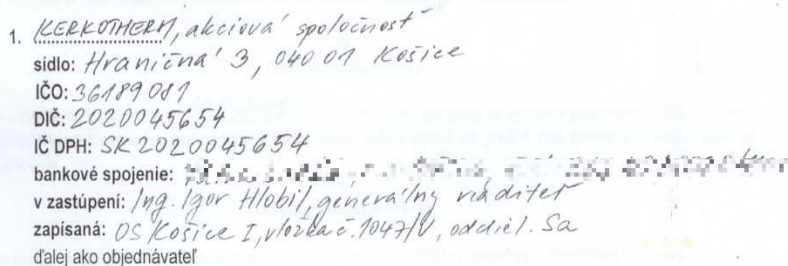 1. KERKOTHERM, akciová spoločnosť
sídlo: Hraničná 3, 040 01 Košice
IČO: 36189081
DIČ: 2020045654
IČ DPH: SK2020045654
bankové spojenie:
v zastúpení: Ing. Igor Hlobil, generálny riaditeľ
zapísaná: OS Košice I, vložka č. 1047/V, oddiel. Sa
ďalej ako objednávateľ